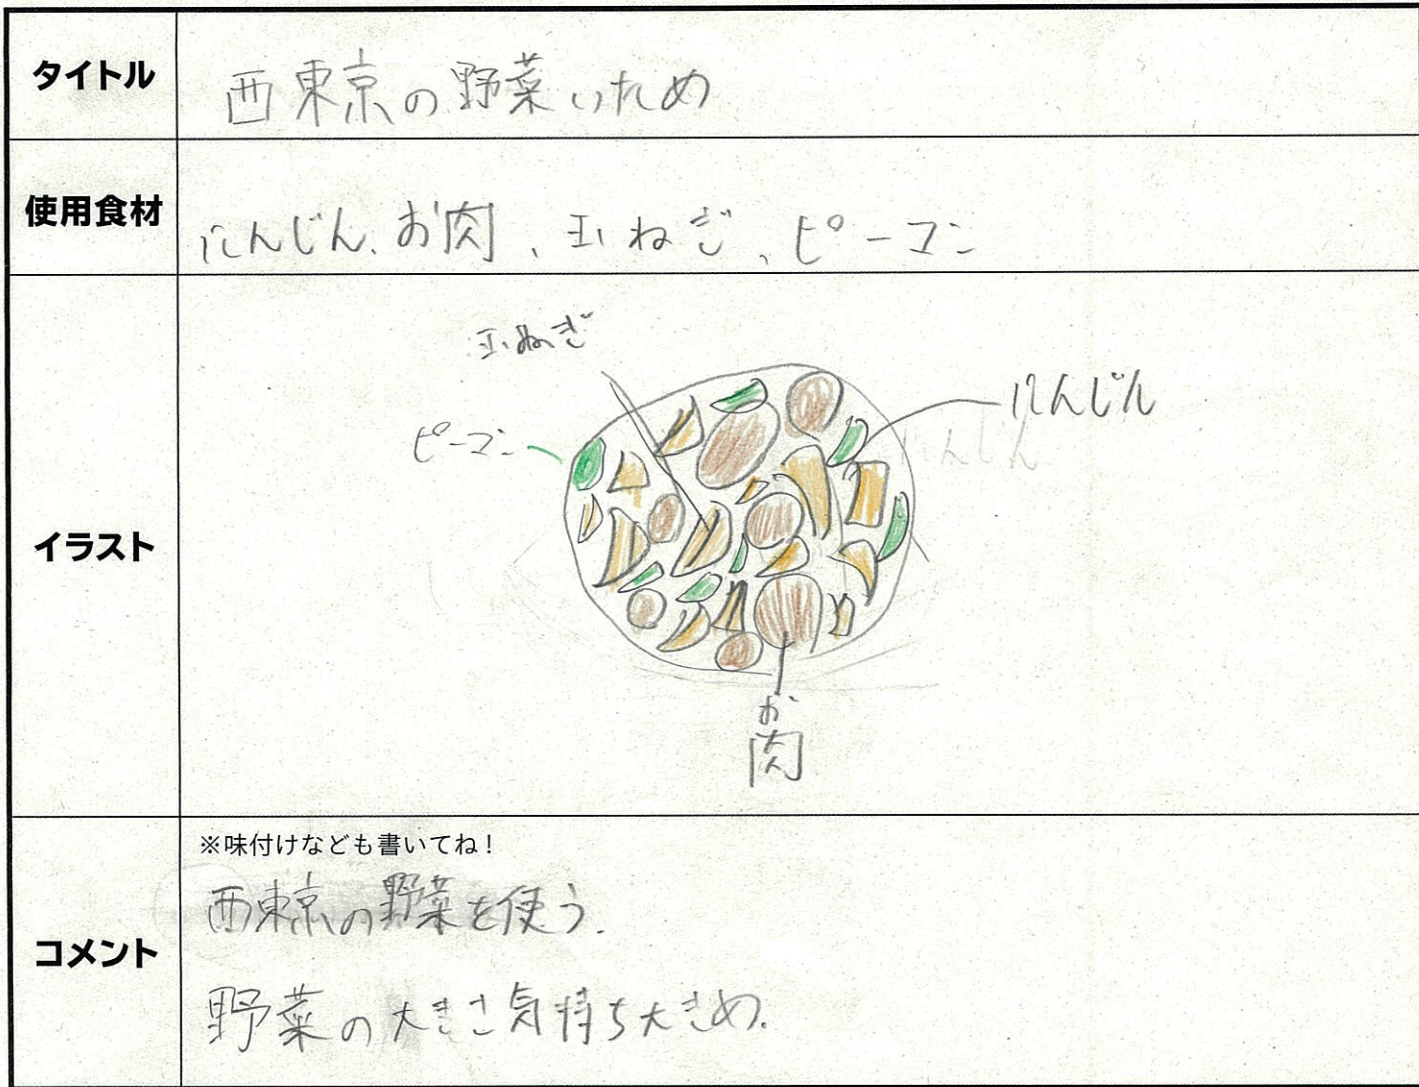 タイトル
西東京の野菜いため
使用食材
にんじん、お肉、玉ねぎ、ピーマン
イラスト
玉ねぎ
ピーマン
にんじん
にんじん
お肉
コメント
※味付けなども書いてね！
西東京の野菜を使う。
野菜の大きさ気持ち大きめ。